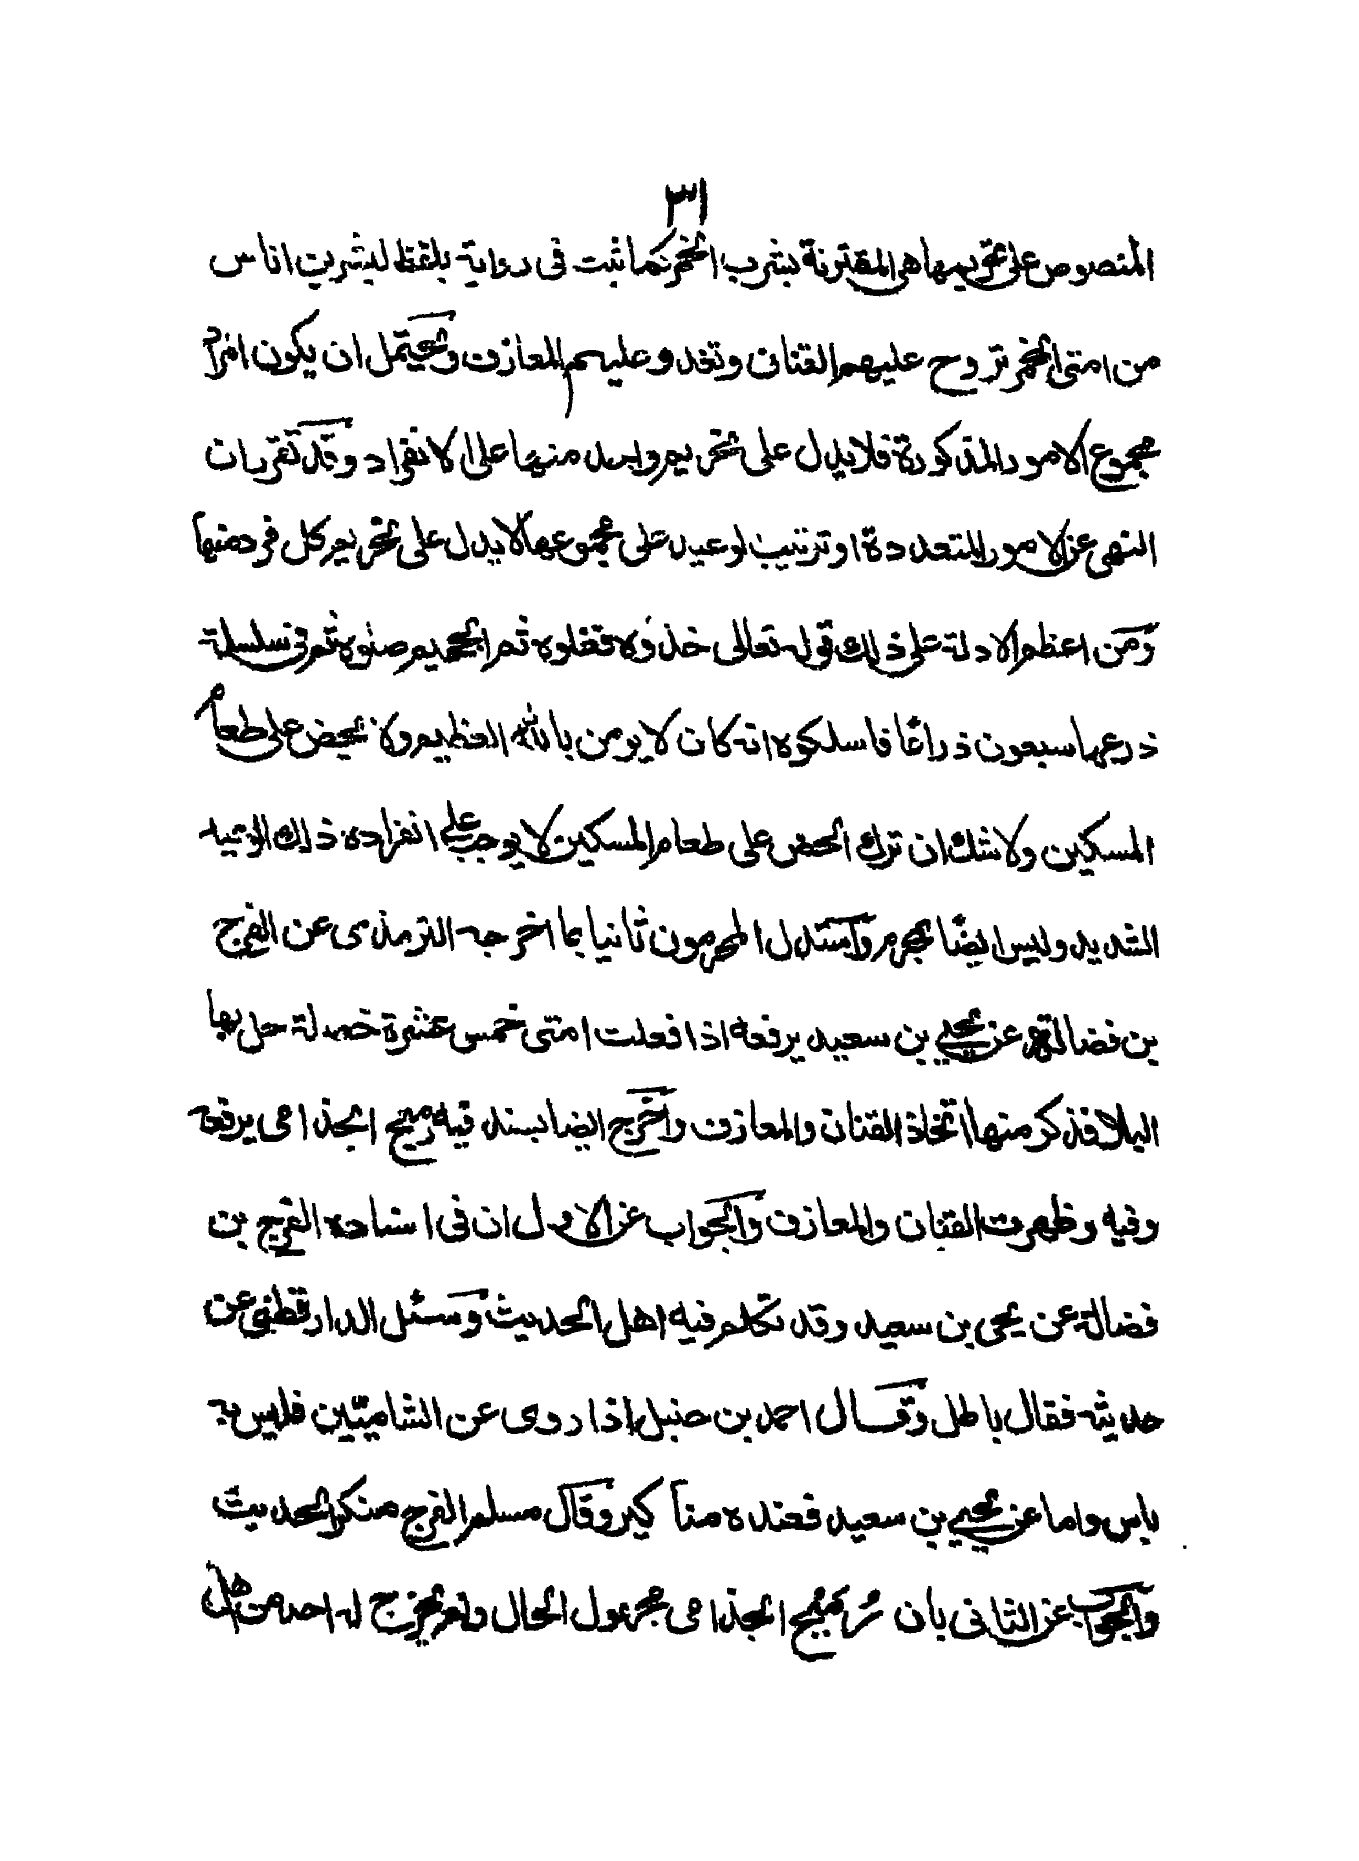 ٣١
المنصوص على تحريمها هي المقترنة بشرب الخمر كما ثبت في رواية بلفظ ليشربن اناس
من امتي الخمر تروح عليهم القنان وتغدو عليهم المعازف ويحتمل ان يكون المراد
مجموع الامور المذكورة فلا يدل على تحريم واحد منها على الانفراد وقد تقرر ان
النهي عن الامور المتعددة او ترتيب الوعيد على مجموعها لا يدل على تحريم كل فرد منها
ومن اعظم الادلة على ذلك قوله تعالى خذوه فغلوه ثم الجحيم صلوه ثم في سلسلة
ذرعها سبعون ذراعًا فاسلكوه انه كان لا يومن بالله العظيم ولا يحض على طعام
المسكين ولا شك ان ترك الحض على طعام المسكين لا يوجب على انفراده ذلك الوعيد
الشديد وليس ايضًا بمحرم واستدل المحرمون ثانيا بما اخرجه الترمذي عن الفرج
بن فضالة عن يحيى بن سعيد يرفعه اذا فعلت امتي خمس عشرة خصلة حل بها
البلا فذكر منها اتخاذ القنان والمعازف واخرج ايضا بسند فيه رميح الجذامي يرفعه
وفيه وظهرت القنان والمعازف والجواب عن الاول ان في اسناده الفرج بن
فضالة عن يحيى بن سعيد وقد تكلم فيه اهل الحديث وسئل الدارقطني عن
حديثه فقال باطل وقال احمد بن حنبل اذا روى عن الشاميّين فليس به
باس واما عن يحيى بن سعيد فعنده مناكير وقال مسلم الفرج منكر الحديث
والجواب عن الثاني بان رميح الجذامي مجهول الحال ولم يخرج له احد من اهل